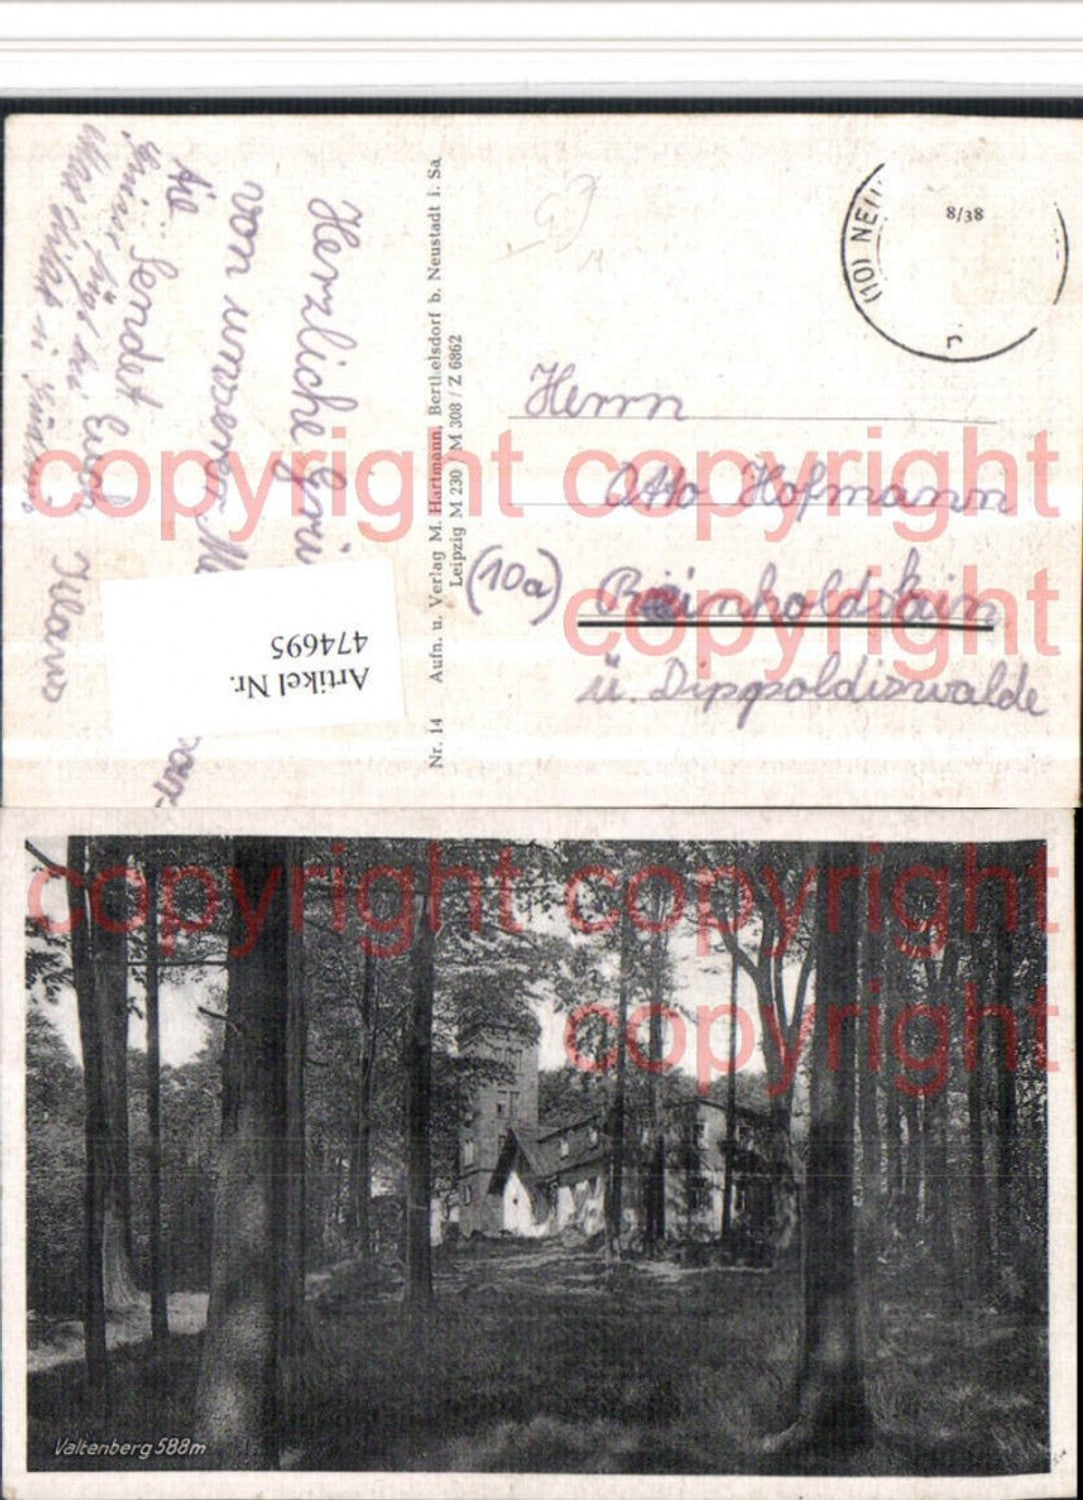 Herzliche Grü
von unserer
die
Sendet Euch
Klaus
Artikel Nr.
474695
Nr. 14 Aufn. u. Verlag M. Hartmann, Berthelsdorf b. Neustadt i. Sa.
Leipzig M 230 / M 308 / Z 6862
(10) NEU
8/38
Herrn
Otto Hofmann
(10a) Reinholdshain
ü. Dippoldiswalde
copyright copyright
copyright
copyright copyright
copyright
Valtenberg 588m